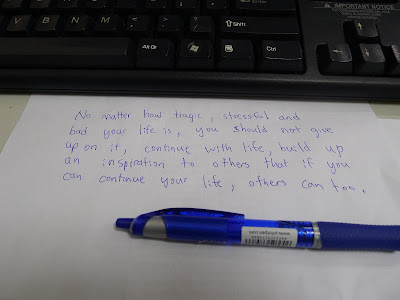 IMPORTANT NOTICE
V B N M < >
Alt Gr
Ctrl
Shift
No matter how tragic, stressful and
bad your life is, you should not give
up on it, continue with life, build up
an inspiration to others that if you
can continue your life, others can too.